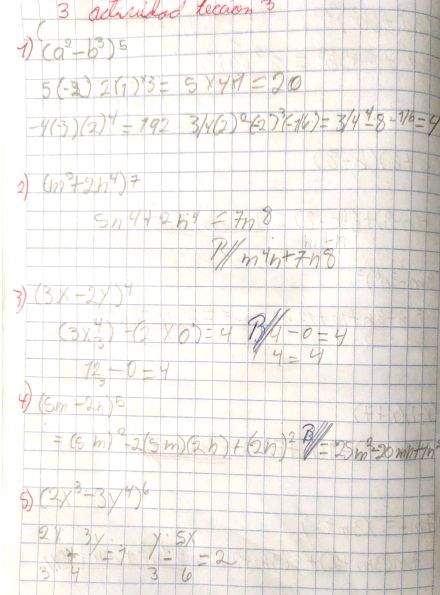 3 actividad Leccion 3
1) (a² - b³)5
5(-3) 2(1)³3 = 5 x 4 x 1 = 20
-4(-3)(2)⁴ = 192 3/4(2)²(-2)³(-1/6) = 3/4 4 - 8 - 1/6 = 4
2) (m³ + 2n⁴)7
5n4 + 2n⁴ = 7n8
R// m4n + 7n8
3) (3x - 2y)4
R// 4 - 0 = 4
4 = 4
12/3 - 0 = 4
4) (5m - 2n)5
= (5m)² - 2(5m)(2n) + (2n)² R// = 25m² - 20mn + 4n²
5) (2x³ - 3y⁴)6
2x 3y y 5x
= 1 = 2
3 4 3 6